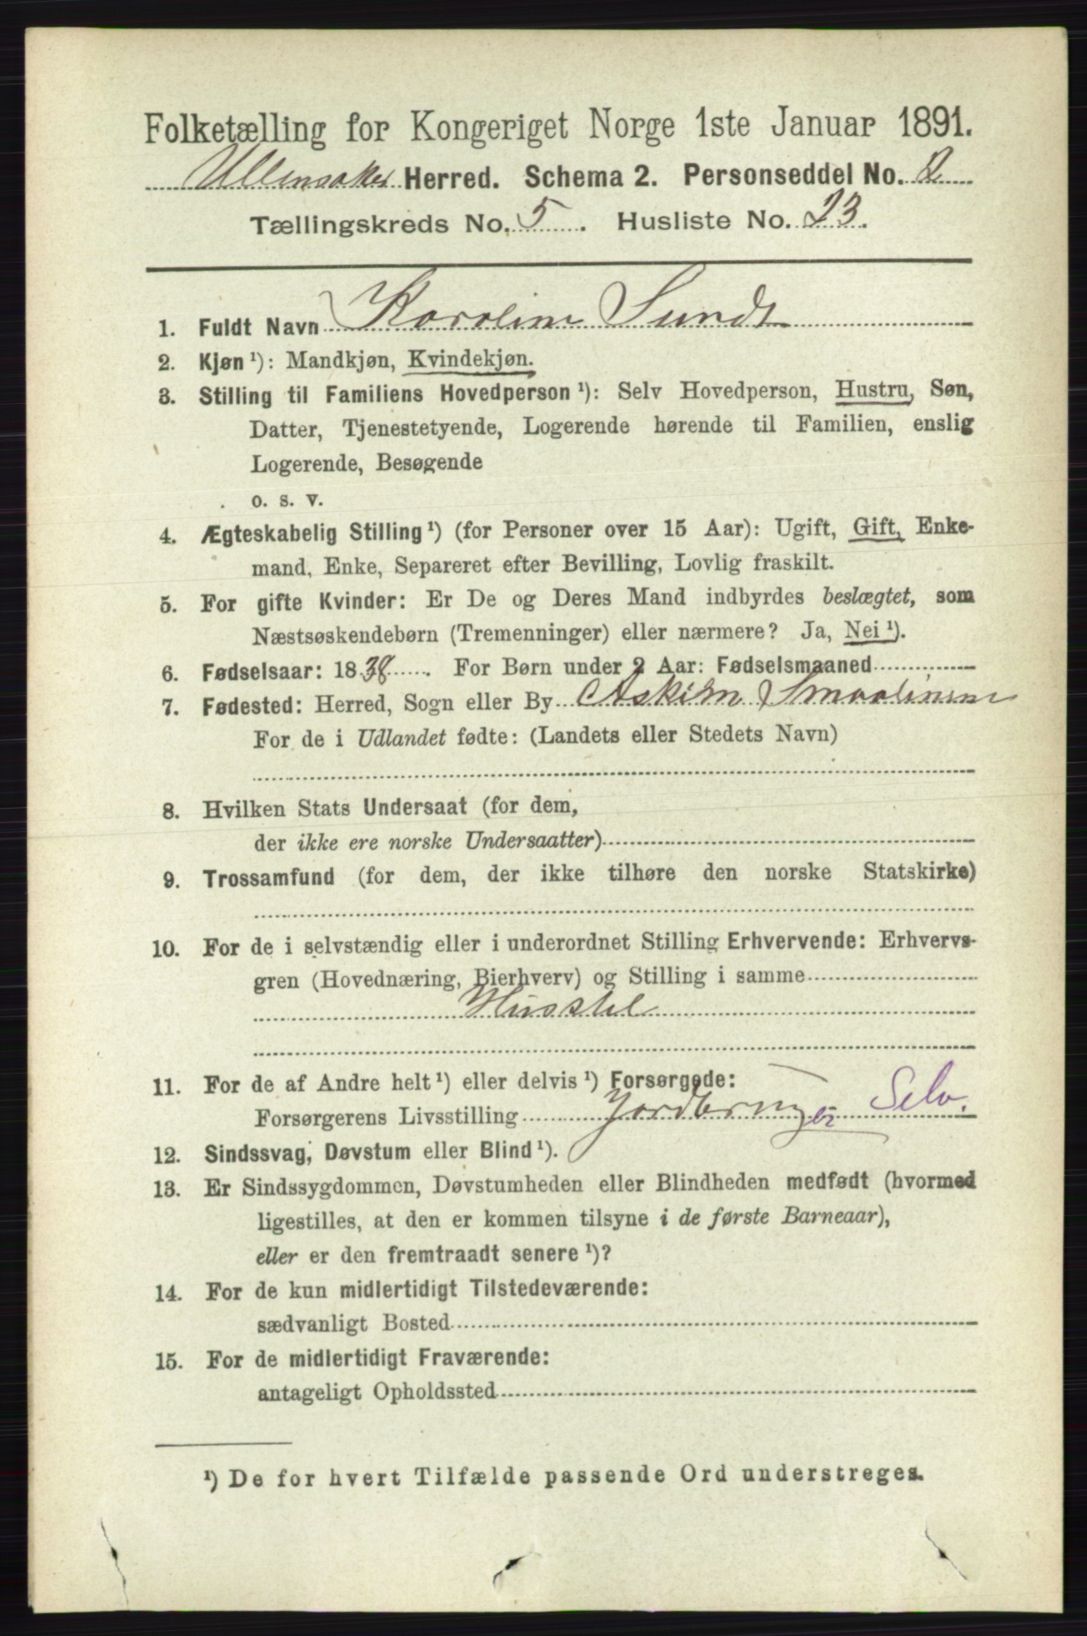 Folketælling for Kongeriget Norge 1ste Januar 1891.
Ullensaker Herred. Schema 2. Personseddel No. 2
Tællingskreds No. 5. Husliste No. 23.
1. Fuldt Navn Karoline Sundt
2. Kjøn ¹): Mandkjøn, Kvindekjøn.
3. Stilling til Familiens Hovedperson ¹): Selv Hovedperson, Hustru, Søn,
Datter, Tjenestetyende, Logerende hørende til Familien, enslig
Logerende, Besøgende
o. s. v.
4. Ægteskabelig Stilling ¹) (for Personer over 15 Aar): Ugift, Gift, Enke-
mand, Enke, Separeret efter Bevilling, Lovlig fraskilt.
5. For gifte Kvinder: Er De og Deres Mand indbyrdes beslægtet, som
Næstsøskendebørn (Tremenninger) eller nærmere? Ja, Nei ¹).
6. Fødselsaar: 1838. For Børn under 2 Aar: Fødselsmaaned
7. Fødested: Herred, Sogn eller By Askim Smaalenene
For de i Udlandet fødte: (Landets eller Stedets Navn)
8. Hvilken Stats Undersaat (for dem,
der ikke ere norske Undersaatter)
9. Trossamfund (for dem, der ikke tilhøre den norske Statskirke)
10. For de i selvstændig eller i underordnet Stilling Erhvervende: Erhvervs-
gren (Hovednæring, Bierhverv) og Stilling i samme
Husstel
11. For de af Andre helt ¹) eller delvis ¹) Forsørgede:
Forsørgerens Livsstilling Jordbruger Selv.
12. Sindssvag, Døvstum eller Blind ¹).
13. Er Sindssygdommen, Døvstumheden eller Blindheden medfødt (hvormed
ligestilles, at den er kommen tilsyne i de første Barneaar),
eller er den fremtraadt senere ¹)?
14. For de kun midlertidigt Tilstedeværende:
sædvanligt Bosted
15. For de midlertidigt Fraværende:
antageligt Opholdssted
¹) De for hvert Tilfælde passende Ord understreges.